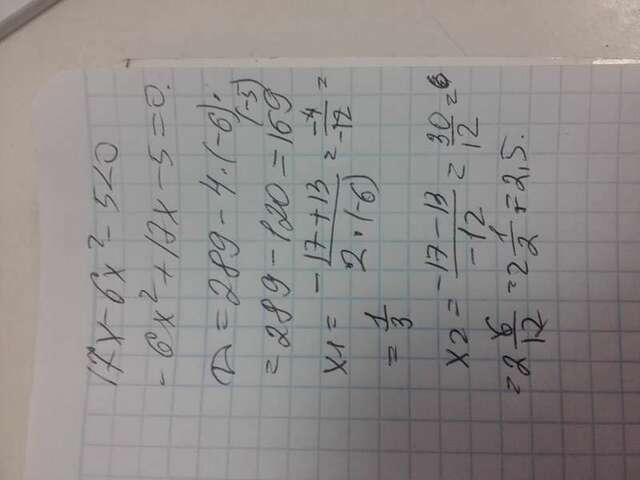 17x-6x²-5<0
-6x²+17x-5=0.
D=289-4·(-6)·(-5)
=289-120=169
x1=\frac{-17+13}{2·(-6)}=\frac{-4}{-12}=
=\frac{1}{3}
x2=\frac{-17-13}{-12}=\frac{30}{12}=
=2\frac{6}{12}=2\frac{1}{2}=2,5.